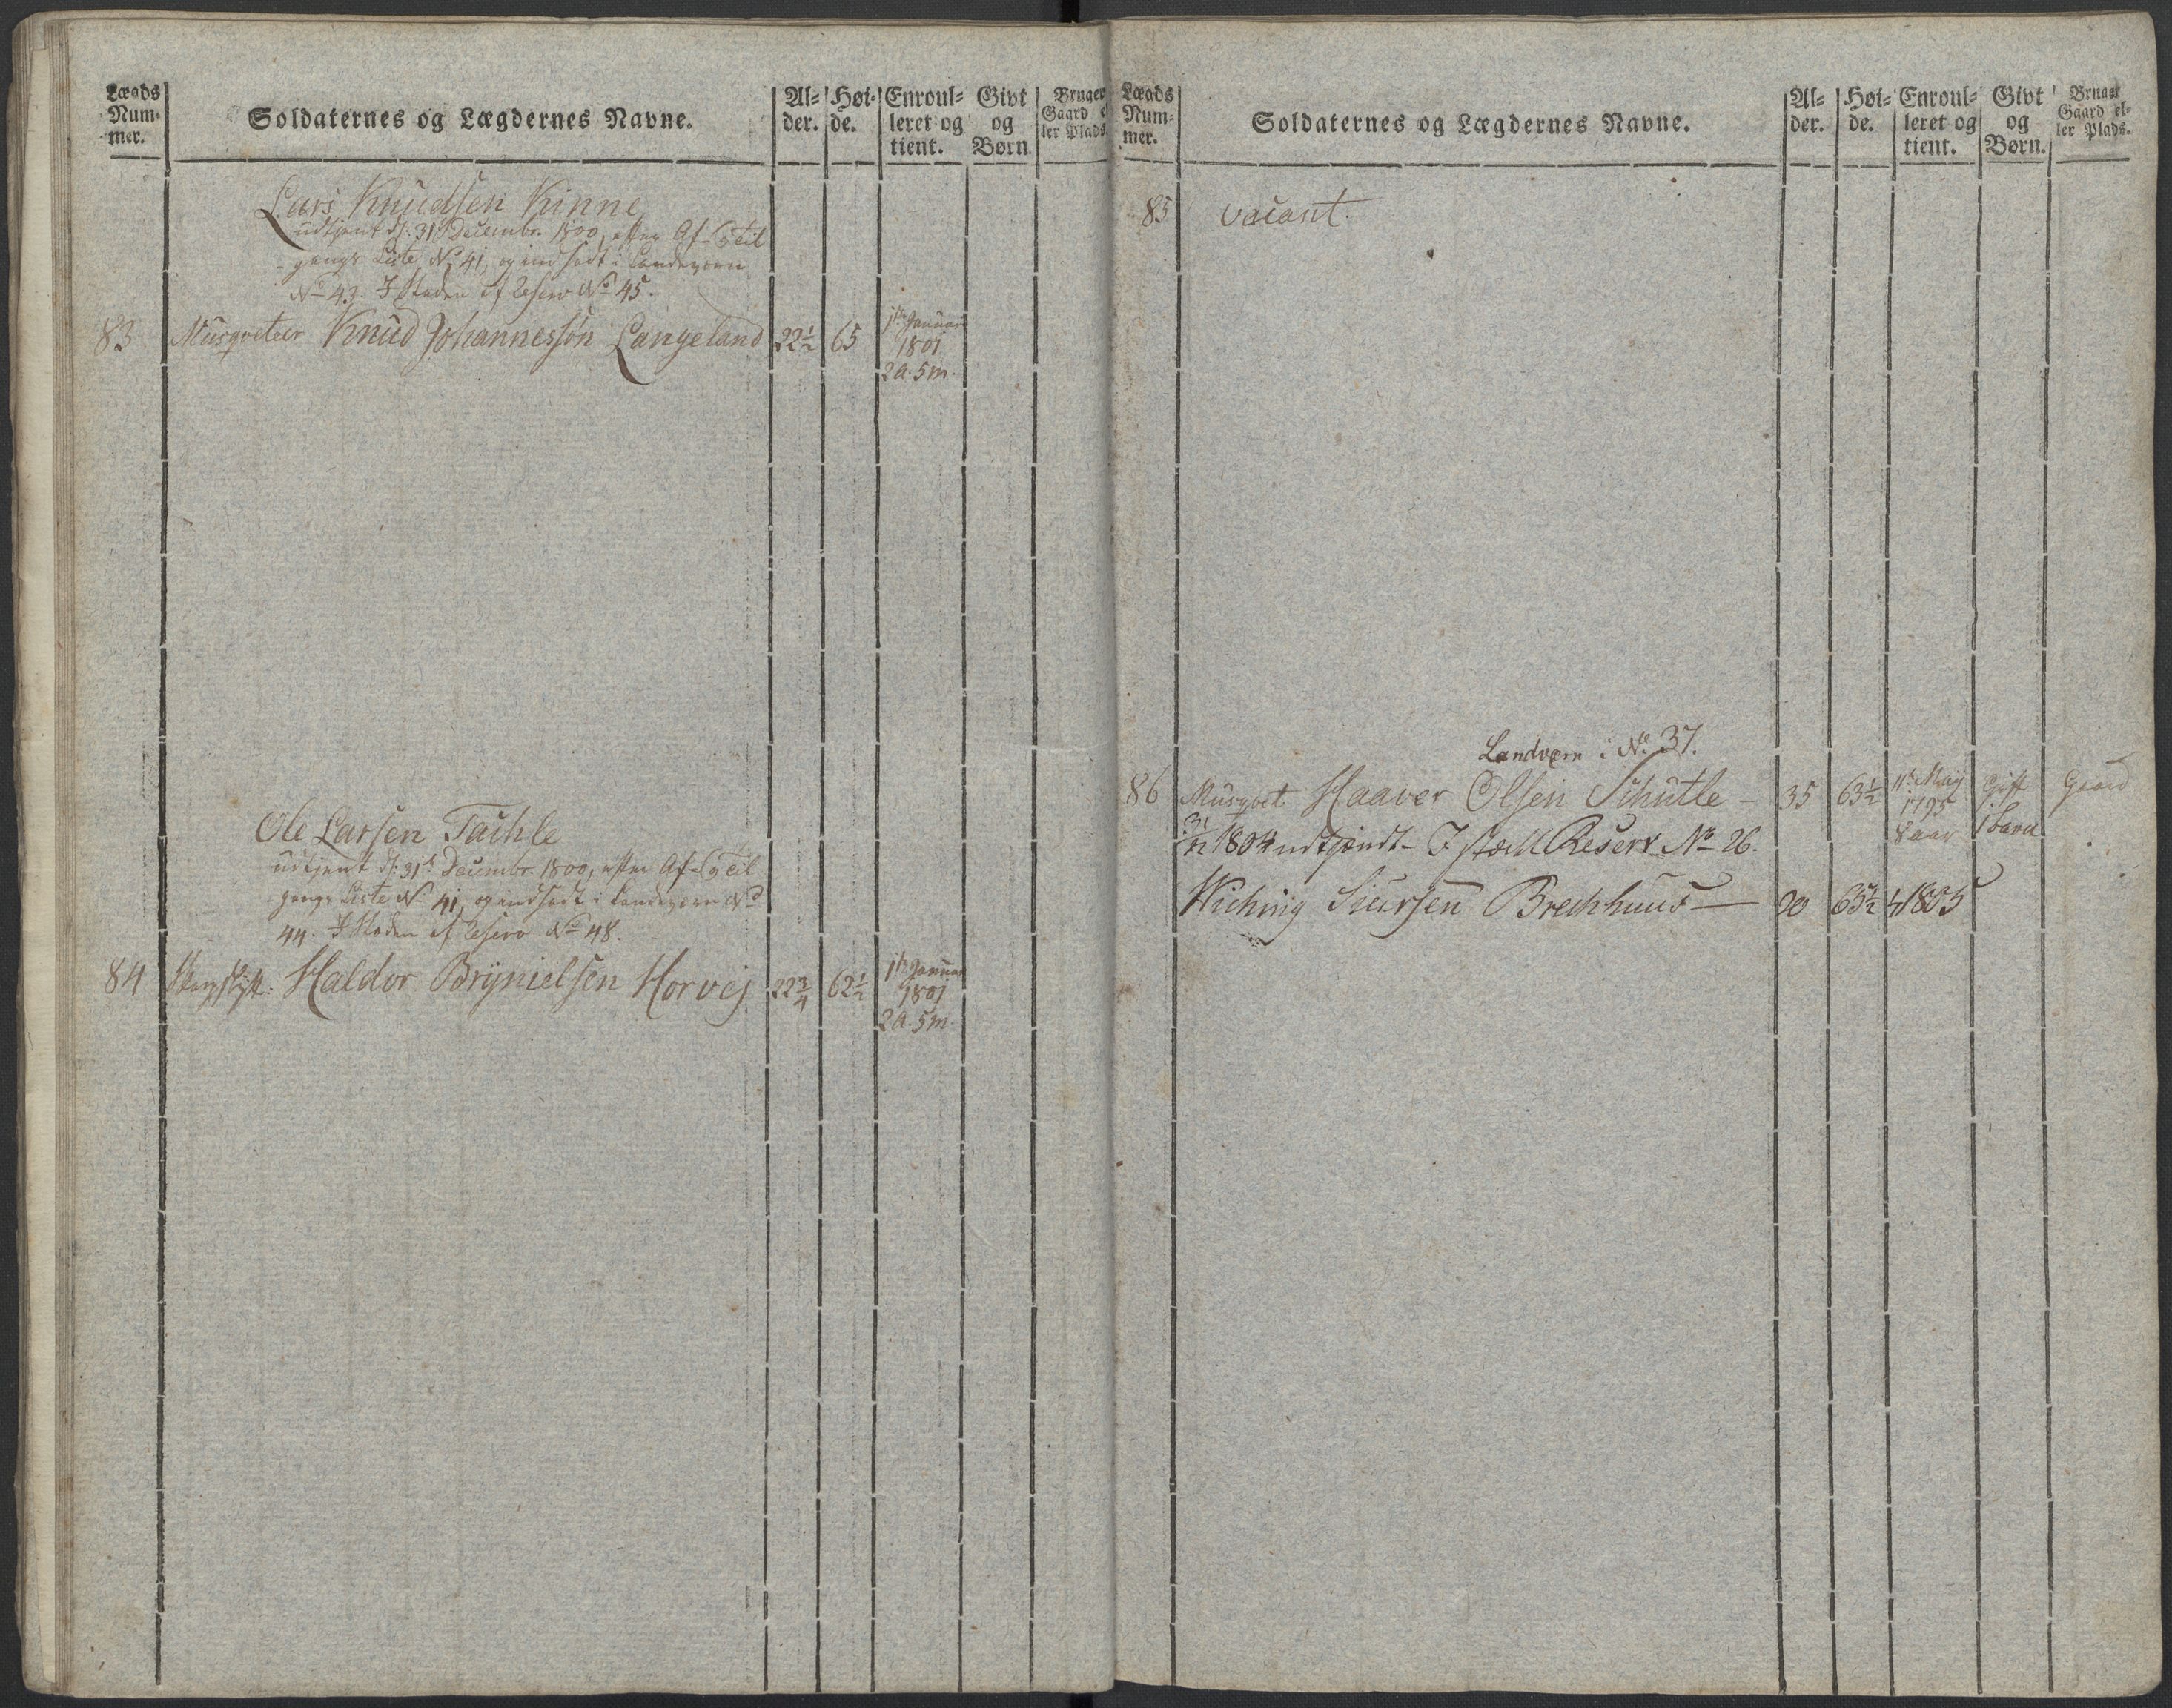 Lægds Num= mer.
Soldaternes og Lægdernes Navne.
Al= der.
Høi= de.
Enroul= leret og tient.
Givt og Børn
Bruger Gaard el ler Plads.
Lars Knudsen Kinne
udtjent d: 31 Decembr. 1800, efter Af- og Til
gangs Liste No 41, og indsadt i Landeværn
No 43. I Staden af Reserv No 45.
83 Musqveteer Knud Johannessøn Langeland 22½ 65 1ste Januar
1801
2 a. 5 m.
Ole Larsen Tachle
udtjent d: 31t Decembr. 1800, efter Af- og Til
gangs Liste No 41, og indsadt i Landeværn No
44. I Staden af Reserv No 48.
84 Skarpskytt. Haldor Brynielsen Horvej 22¾ 62½ 1ste Januar
1801
2 a. 5 m.
Lægds Num= mer.
Soldaternes og Lægdernes Navne.
Al= der.
Høi= de.
Enroul= leret og tient.
Givt og Børn.
Bruger Gaard el= ler Plads.
85 vacant.
Landværn i No 37.
86 Musqvet Haaver Olsen Schutle - 35 63½ 11te Maij Gift Gaard
1795
8 aar 1 barn
31/12 1804 udtjendt - I stæd Reserv No 26.
Wiching Siursen Brechhuus — 20 65½ 1/1 1805